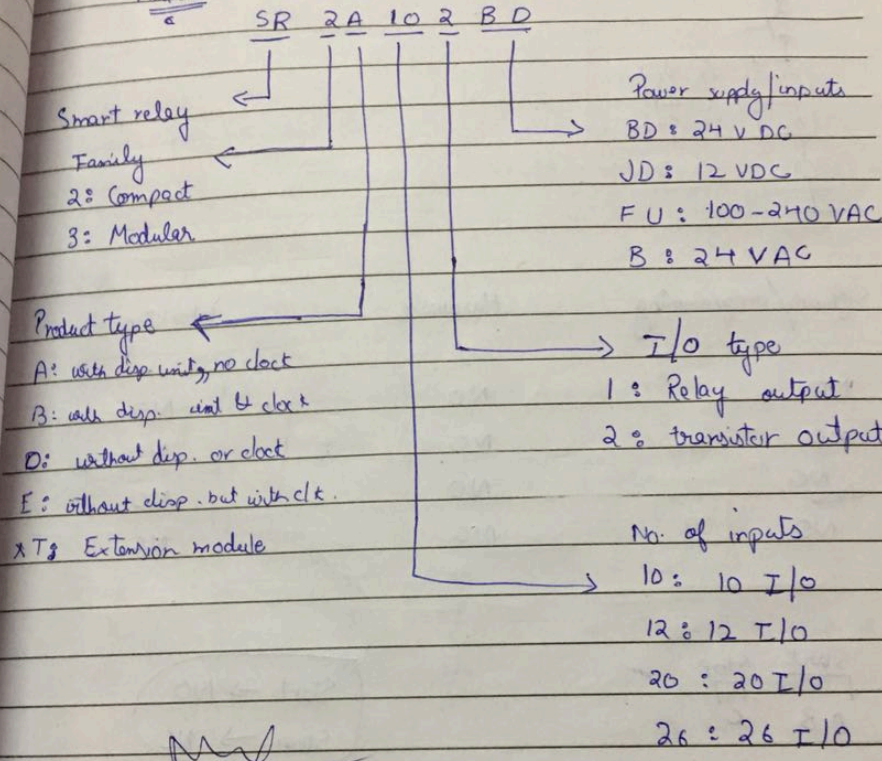 SR 2 A 10 2 B D
Smart relay
Family
2: Compact
3: Modular
Product type
A: with disp unit, no clock
B: with disp. unit & clock
D: without disp. or clock
E: without disp. but with clk.
* T: Extension module
Power supply/inputs
BD: 24 V DC
JD: 12 VDC
FU: 100-240 VAC
B: 24 VAC
I/O type
1: Relay output
2: transistor output
No. of inputs
10: 10 I/O
12: 12 I/O
20: 20 I/O
26: 26 I/O